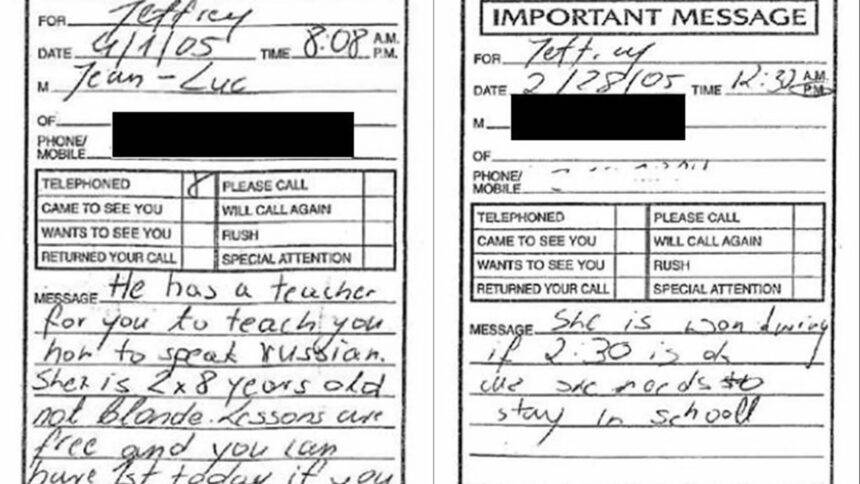 FOR Jeffrey
DATE 4/1/05 TIME 8:08 A.M. P.M.
M Jean-Luc
OF
PHONE/ MOBILE
TELEPHONED PLEASE CALL
CAME TO SEE YOU WILL CALL AGAIN
WANTS TO SEE YOU RUSH
RETURNED YOUR CALL SPECIAL ATTENTION
MESSAGE He has a teacher
for you to teach you
how to speak russian.
She is 2x8 years old
not blonde. Lessons are
free and you can
have 1st today if you
IMPORTANT MESSAGE
FOR Jeffrey
DATE 2/28/05 TIME 12:32 A.M. P.M.
M
OF
PHONE/ MOBILE
TELEPHONED PLEASE CALL
CAME TO SEE YOU WILL CALL AGAIN
WANTS TO SEE YOU RUSH
RETURNED YOUR CALL SPECIAL ATTENTION
MESSAGE She is wondering
if 2:30 is ok
she needs to
stay in school